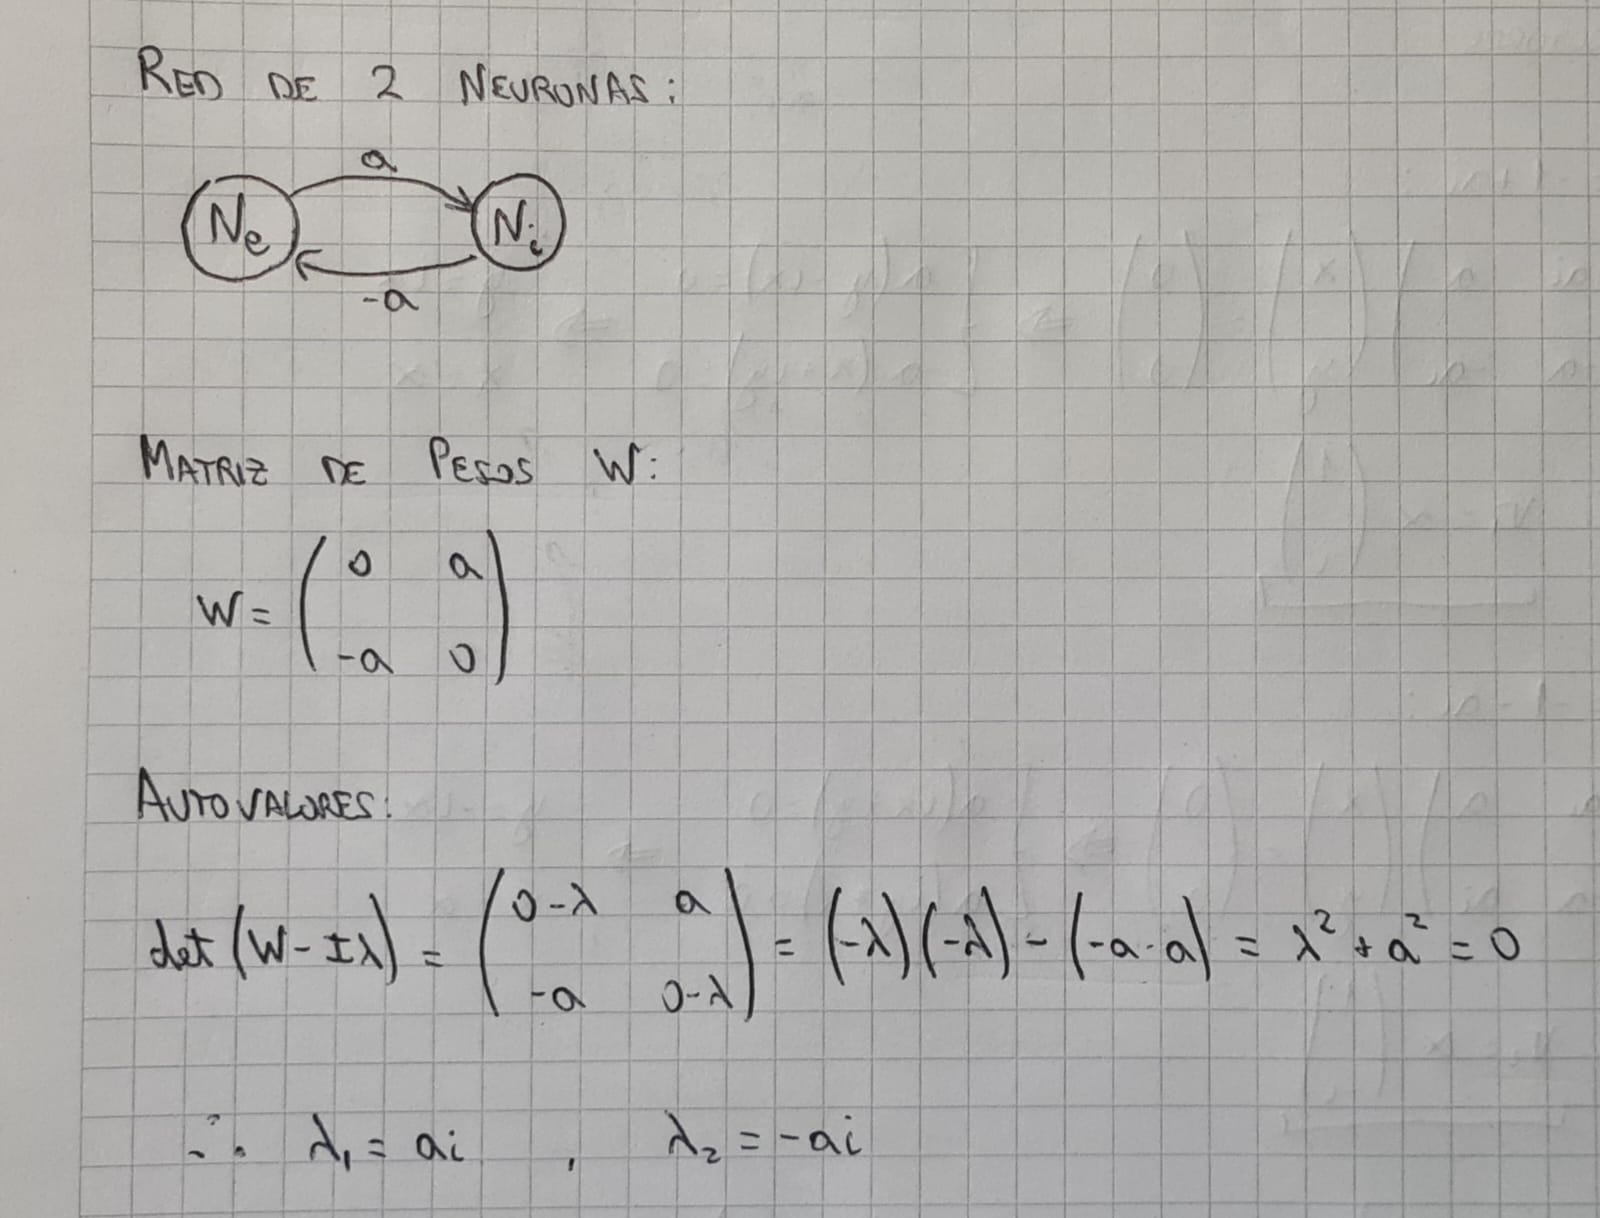 RED DE 2 NEURONAS:
a
Ne Ni
-a
MATRIZ DE PESOS W:
W = ( 0 a
-a 0 )
AUTOVALORES:
det (W - Iλ) = ( 0-λ a
-a 0-λ ) = (-λ)(-λ) - (-a·a) = λ² + a² = 0
∴ λ₁ = ai , λ₂ = -ai